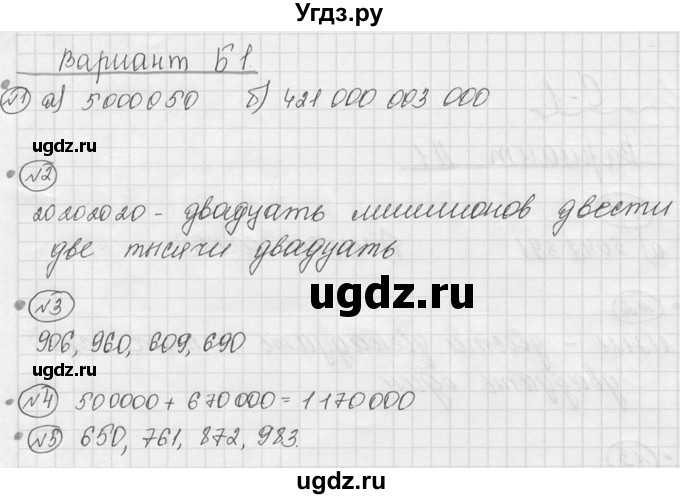 Угдз.ру
Вариант Б1.
№1 а) 5000050 б) 421 000 003 000
ugdz.ru
ugdz.ru
№2
20202020 - двадцать миллионов двести
две тысячи двадцать
ugdz.ru
№3
906, 960, 609, 690
№4 500000 + 670000 = 1170000
№5 650, 761, 872, 983.
ugdz.ru
ugdz.ru